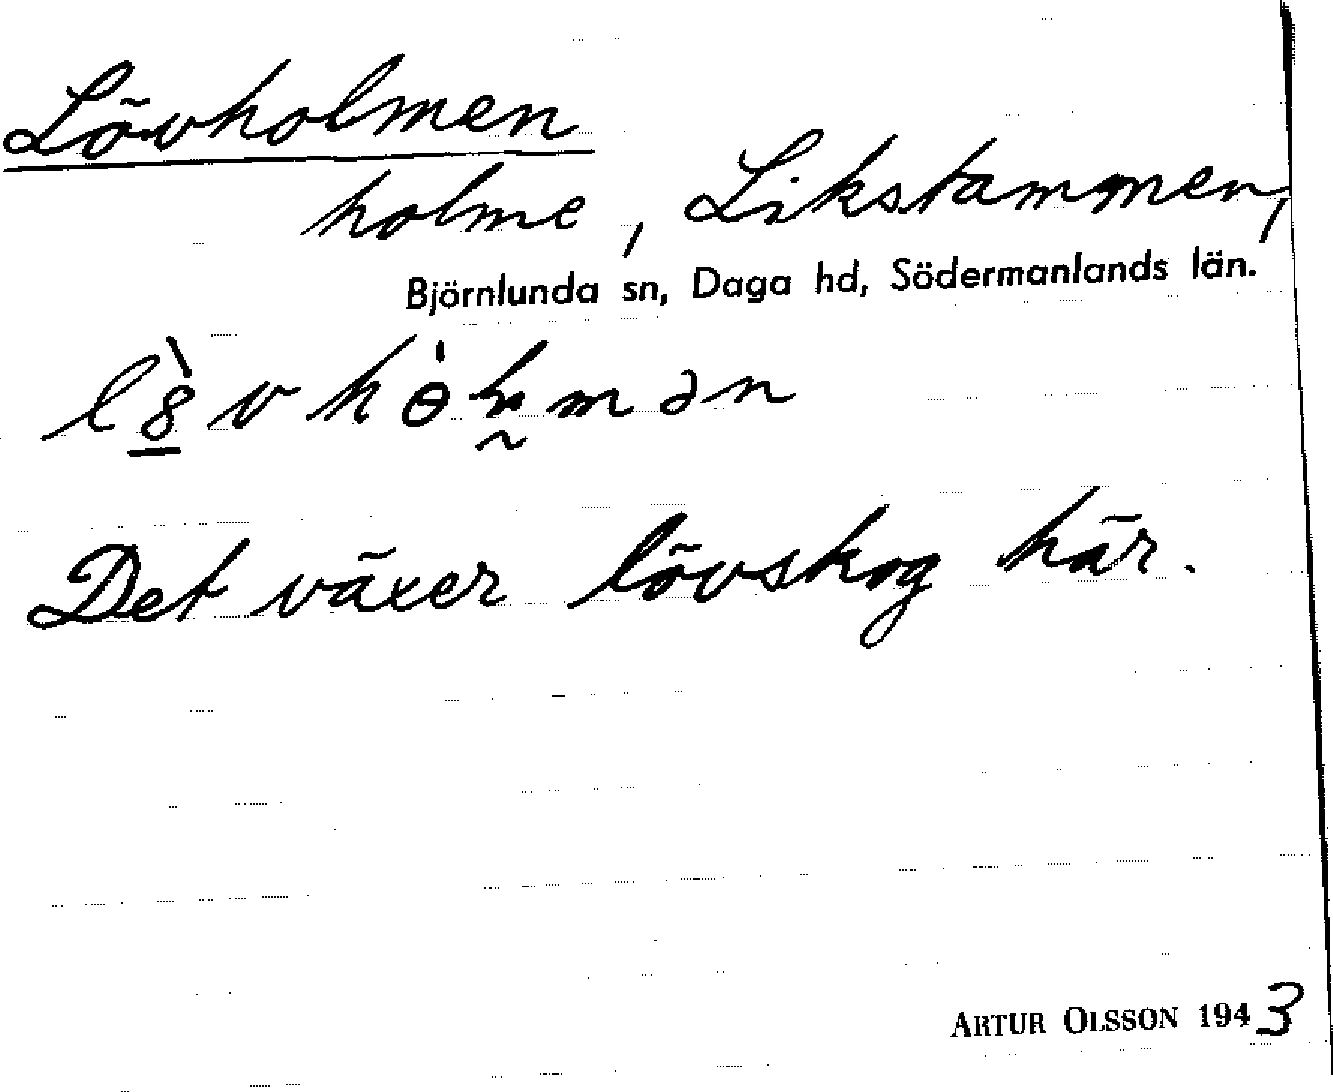 Lövholmen
holme, Likstammen,
Björnlunda sn, Daga hd, Södermanlands län.
Det växer lövskog här.
ARTUR OLSSON 1943